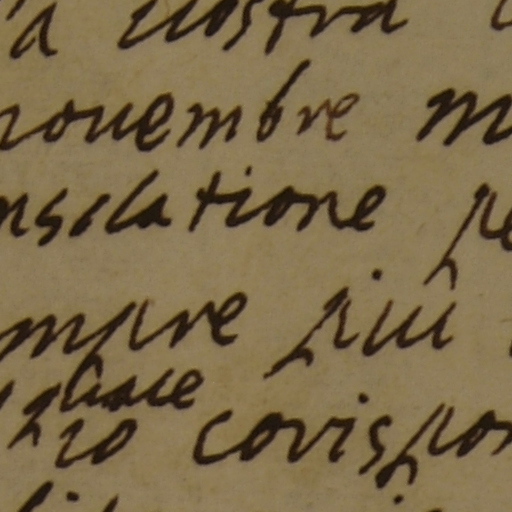 a nostra
nouembre m
nsolatione pe
mpre più
zio corispon